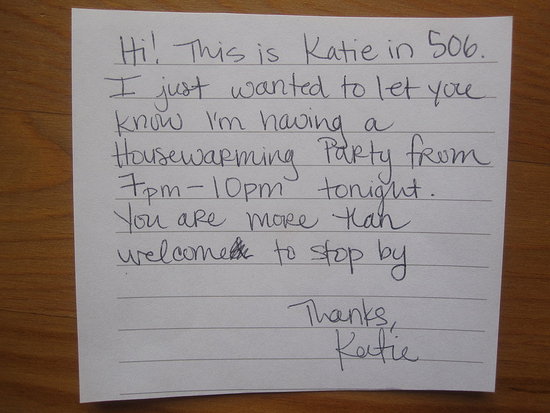 Hi! This is Katie in 506.
I just wanted to let you
know I'm having a
Housewarming Party from
7pm-10pm tonight.
You are more than
welcome to stop by
Thanks,
Katie